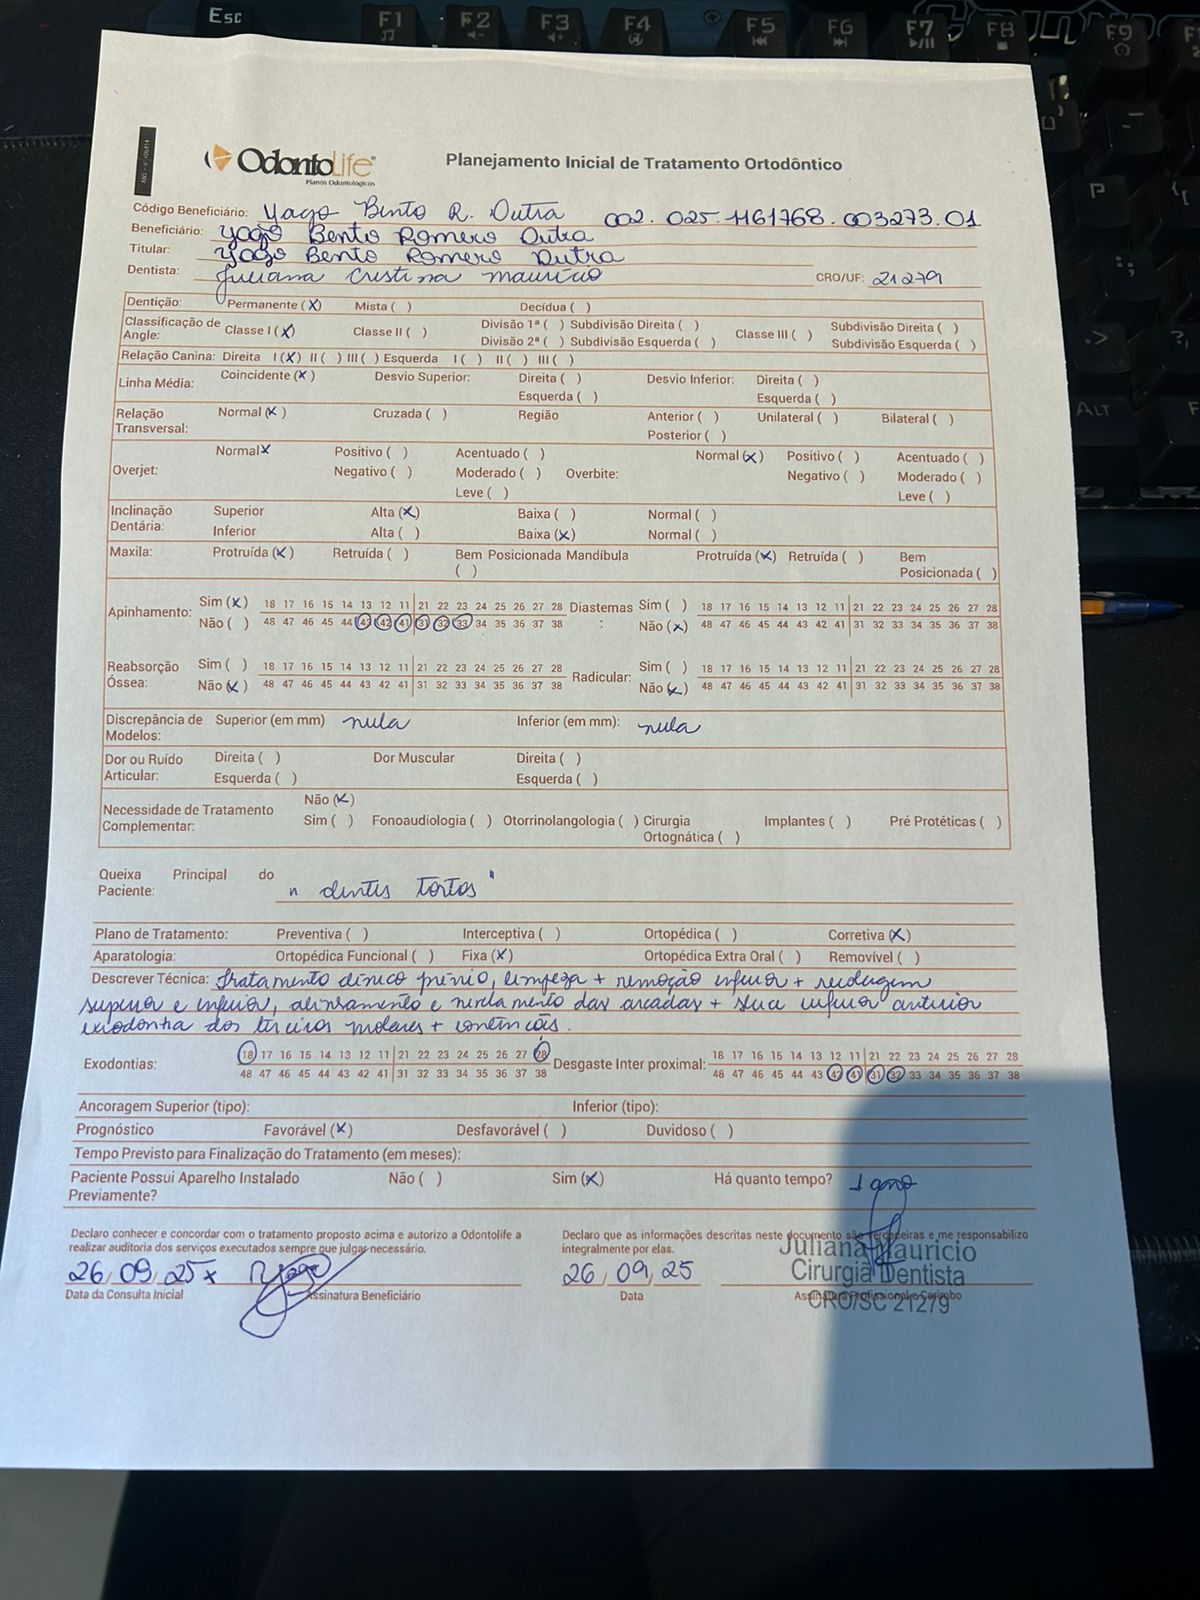 Esc F1 F2 F3 F4 F5 F6 F7 F8 F9
ANS - nº 406414
OdontoLife®
Planos Odontológicos
Planejamento Inicial de Tratamento Ortodôntico
Código Beneficiário: Yago Bento R. Dutra 002.025.1161768.003273.01
Beneficiário: Yago Bento Romero Dutra
Titular: Yago Bento Romero Dutra
Dentista: Juliana Cristina Maurício CRO/UF: 21279
Dentição: Permanente (X) Mista ( ) Decídua ( )
Classificação de Angle: Classe I (X) Classe II ( ) Divisão 1ª ( ) Subdivisão Direita ( ) Classe III ( ) Subdivisão Direita ( )
Divisão 2ª ( ) Subdivisão Esquerda ( ) Subdivisão Esquerda ( )
Relação Canina: Direita I (X) II ( ) III ( ) Esquerda I ( ) II ( ) III ( )
Linha Média: Coincidente (X) Desvio Superior: Direita ( ) Desvio Inferior: Direita ( )
Esquerda ( ) Esquerda ( )
Relação Transversal: Normal (X) Cruzada ( ) Região Anterior ( ) Unilateral ( ) Bilateral ( )
Posterior ( )
Overjet: Normal X Positivo ( ) Acentuado ( ) Overbite: Normal (X) Positivo ( ) Acentuado ( )
Negativo ( ) Moderado ( ) Negativo ( ) Moderado ( )
Leve ( ) Leve ( )
Inclinação Dentária: Superior Alta (X) Baixa ( ) Normal ( )
Inferior Alta ( ) Baixa (X) Normal ( )
Maxila: Protruída (X) Retruída ( ) Bem Posicionada ( ) Mandíbula Protruída (X) Retruída ( ) Bem Posicionada ( )
Apinhamento: Sim (X) 18 17 16 15 14 13 12 11 21 22 23 24 25 26 27 28 Diastemas: Sim ( ) 18 17 16 15 14 13 12 11 21 22 23 24 25 26 27 28
Não ( ) 48 47 46 45 44 43 42 41 31 32 33 34 35 36 37 38 Não (X) 48 47 46 45 44 43 42 41 31 32 33 34 35 36 37 38
Reabsorção Óssea: Sim ( ) 18 17 16 15 14 13 12 11 21 22 23 24 25 26 27 28 Radicular: Sim ( ) 18 17 16 15 14 13 12 11 21 22 23 24 25 26 27 28
Não (X) 48 47 46 45 44 43 42 41 31 32 33 34 35 36 37 38 Não (X) 48 47 46 45 44 43 42 41 31 32 33 34 35 36 37 38
Discrepância de Modelos: Superior (em mm) nula Inferior (em mm): nula
Dor ou Ruído Articular: Direita ( ) Dor Muscular Direita ( )
Esquerda ( ) Esquerda ( )
Necessidade de Tratamento Complementar: Não (X)
Sim ( ) Fonoaudiologia ( ) Otorrinolangologia ( ) Cirurgia Ortognática ( ) Implantes ( ) Pré Protéticas ( )
Queixa Principal do Paciente: "dentes tortos"
Plano de Tratamento: Preventiva ( ) Interceptiva ( ) Ortopédica ( ) Corretiva (X)
Aparatologia: Ortopédica Funcional ( ) Fixa (X) Ortopédica Extra Oral ( ) Removível ( )
Descrever Técnica: Tratamento clínico prévio, limpeza + remoção inferior +
superior e inferior, alinhamento e nivelamento das arcadas + inferior anterior
exodontia dos terceiros molares + contenção.
Exodontias: 18 17 16 15 14 13 12 11 21 22 23 24 25 26 27 28 Desgaste Inter proximal: 18 17 16 15 14 13 12 11 21 22 23 24 25 26 27 28
48 47 46 45 44 43 42 41 31 32 33 34 35 36 37 38 48 47 46 45 44 43 42 41 31 32 33 34 35 36 37 38
Ancoragem Superior (tipo): Inferior (tipo):
Prognóstico Favorável (X) Desfavorável ( ) Duvidoso ( )
Tempo Previsto para Finalização do Tratamento (em meses):
Paciente Possui Aparelho Instalado Previamente? Não ( ) Sim (X) Há quanto tempo? 1 ano
Declaro conhecer e concordar com o tratamento proposto acima e autorizo a Odontolife a
realizar auditoria dos serviços executados sempre que julgar necessário.
Declaro que as informações descritas neste documento são verdadeiras e me responsabilizo
integralmente por elas.
26/09/25 x Yago 26/09/25
Juliana Mauricio
Cirurgiã Dentista
CRO/SC 21279
Data da Consulta Inicial Assinatura Beneficiário Data Assinatura Profissional e Carimbo